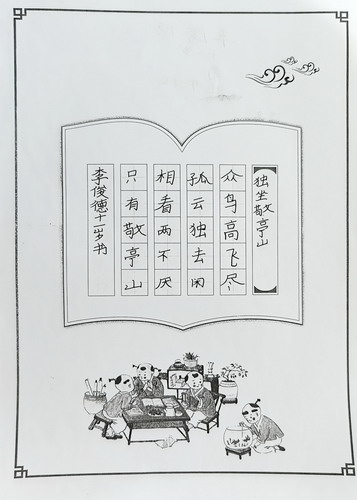 独坐敬亭山
众鸟高飞尽
孤云独去闲
相看两不厌
只有敬亭山
李俊德十一岁书